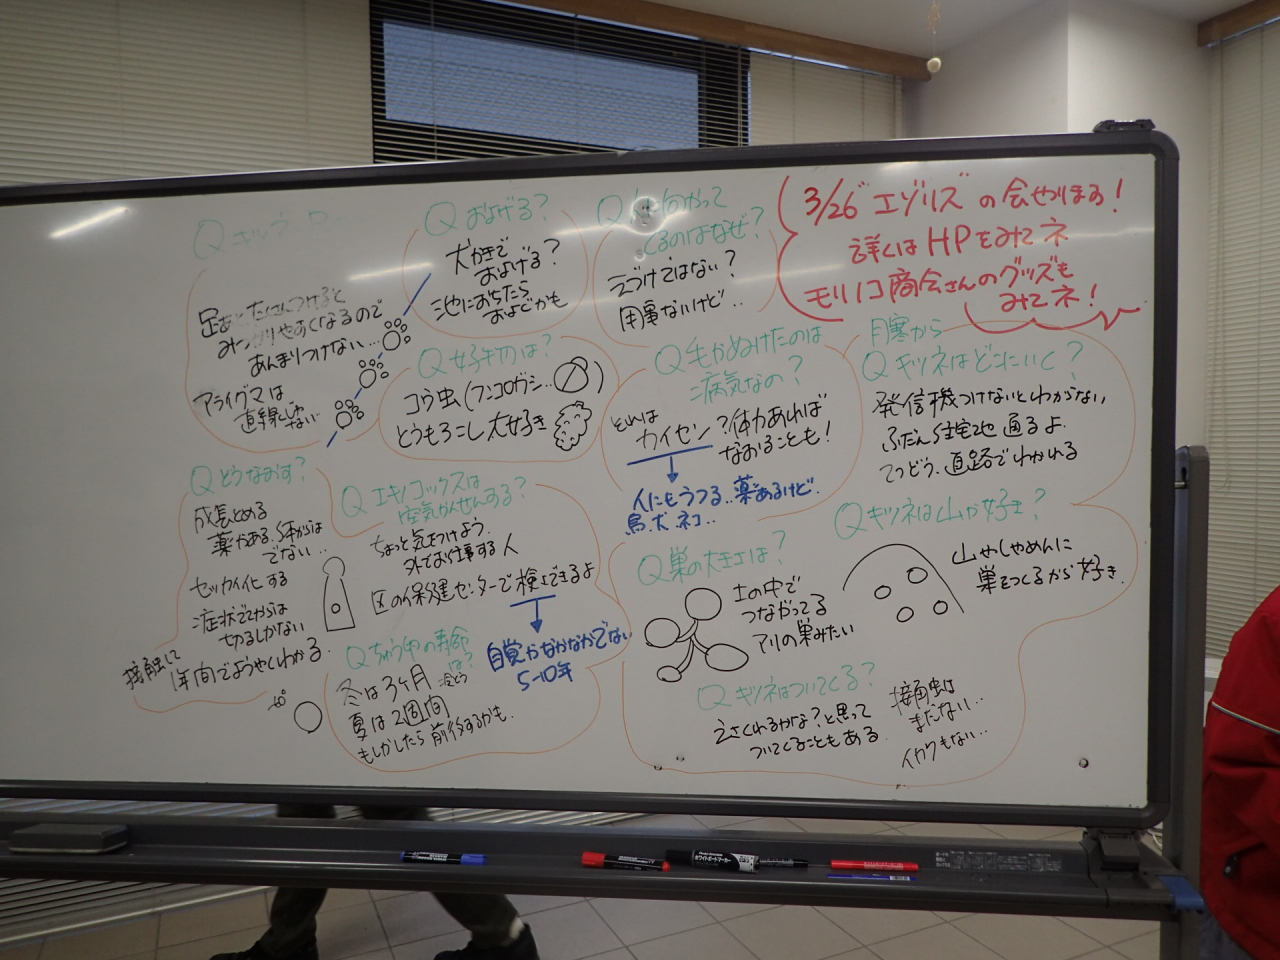 3/26 エゾリスの会やります!
詳しくはHPをみてネ
モリノコ商会さんのグッズも
みてネ!
Q キツネ
足あと たくさんつけると
みつかりやすくなるので
あんまりつけない…
アライグマは
直線じゃない
Q およげる?
犬かきで
およげる?
池におちたら
およぐかも
Q 何やって
くるのはなぜ?
えづけではない?
用事ないけど..
Q 好き物は?
コウ虫(フンコロガシ..
とうもろこし大好き
Q 毛がぬけたのは
病気なの?
それは
カイセン?体力あれば
なおることも!
人にもうつる..薬あるけど.
鳥、犬、ネコ..
月寒から
Q キツネはどこにいく?
発信機つけないとわからない
ふだん住宅地通るよ.
てつどう、道路でわかれる
Q どうなおす?
成長とめる
薬がある、体からは
でない..
セッカイ化する
症状でてからは
切るしかない
接触して
1年間でようやくわかる.
Q エキノコックスは
空気かんせんする?
ちょっと気をつけよう.
外でお仕事する人
区の保健センターで検さできるよ
自覚がなかなかでない
5-10年
Q ちゅう卵の寿命
は?
冬は3ヶ月
冷どう
夏は2週間
もしかしたら前後するかも.
Q 巣の大きさは?
土の中で
つながってる
アリの巣みたい
Q キツネは山が好き?
山やしゃめんに
巣をつくるから好き.
Q キツネはついてくる?
えさくれるかな?と思って
ついてくることもある.
接触は
まだない…
イカクもない…
ホワイトボードマーカー